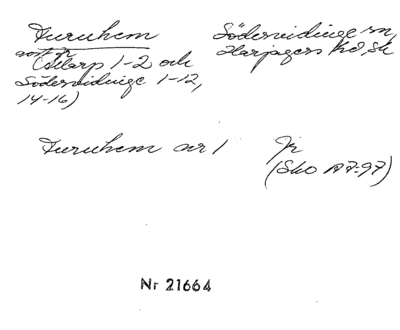 Furuhem Södervidinge sn,
avst fr Harjagers hd, Sk
(Alarp 1-2 och
Södervidinge 1-12,
14-16)
Furuhem nr 1 Jr
(Sko A 7:97)
Nr 21664